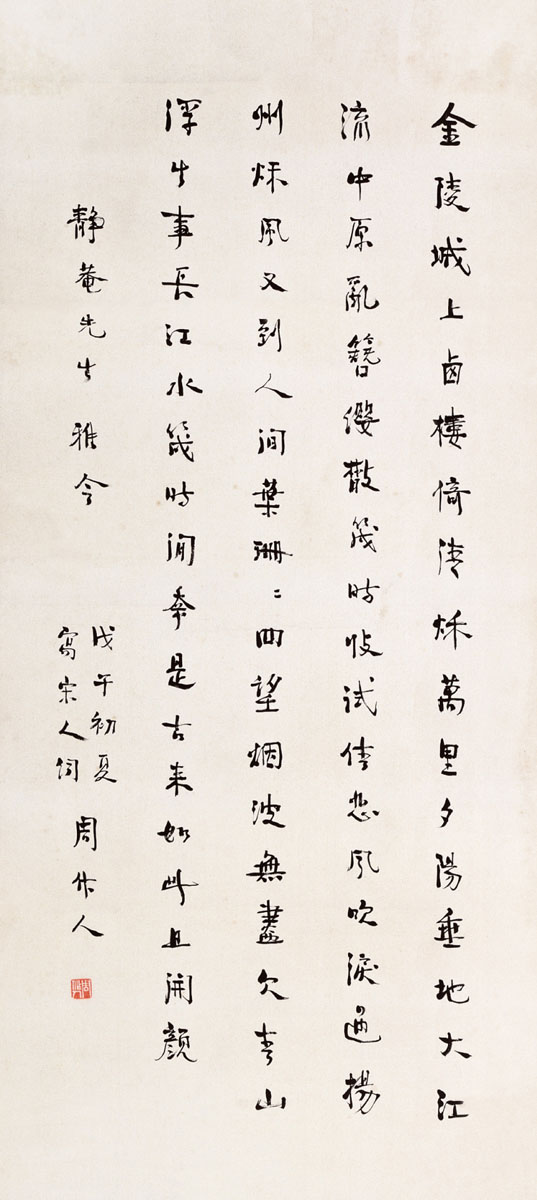 金陵城上西樓倚清秋萬里夕陽垂地大江
流中原亂簪纓散幾時收試倩悲風吹淚過揚
州秋風又到人間葉珊〻四望烟波無盡欠青山
浮生事長江水幾時閒幸是古来如此且開顏
靜菴先生 雅令
戊午初夏
寫宋人词
周作人